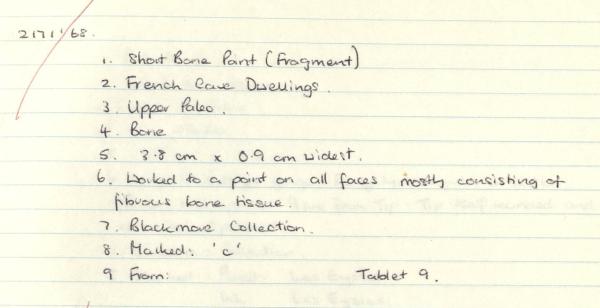 2171'68.
1. Short Bone Point (Fragment)
2. French Cave Dwellings.
3. Upper Paleo.
4. Bone
5. 3.8 cm x 0.9 cm widest.
6. Worked to a point on all faces mostly consisting of
fibrous bone tissue.
7. Blackmore Collection.
8. Marked: 'c'
9 From: Tablet 9.